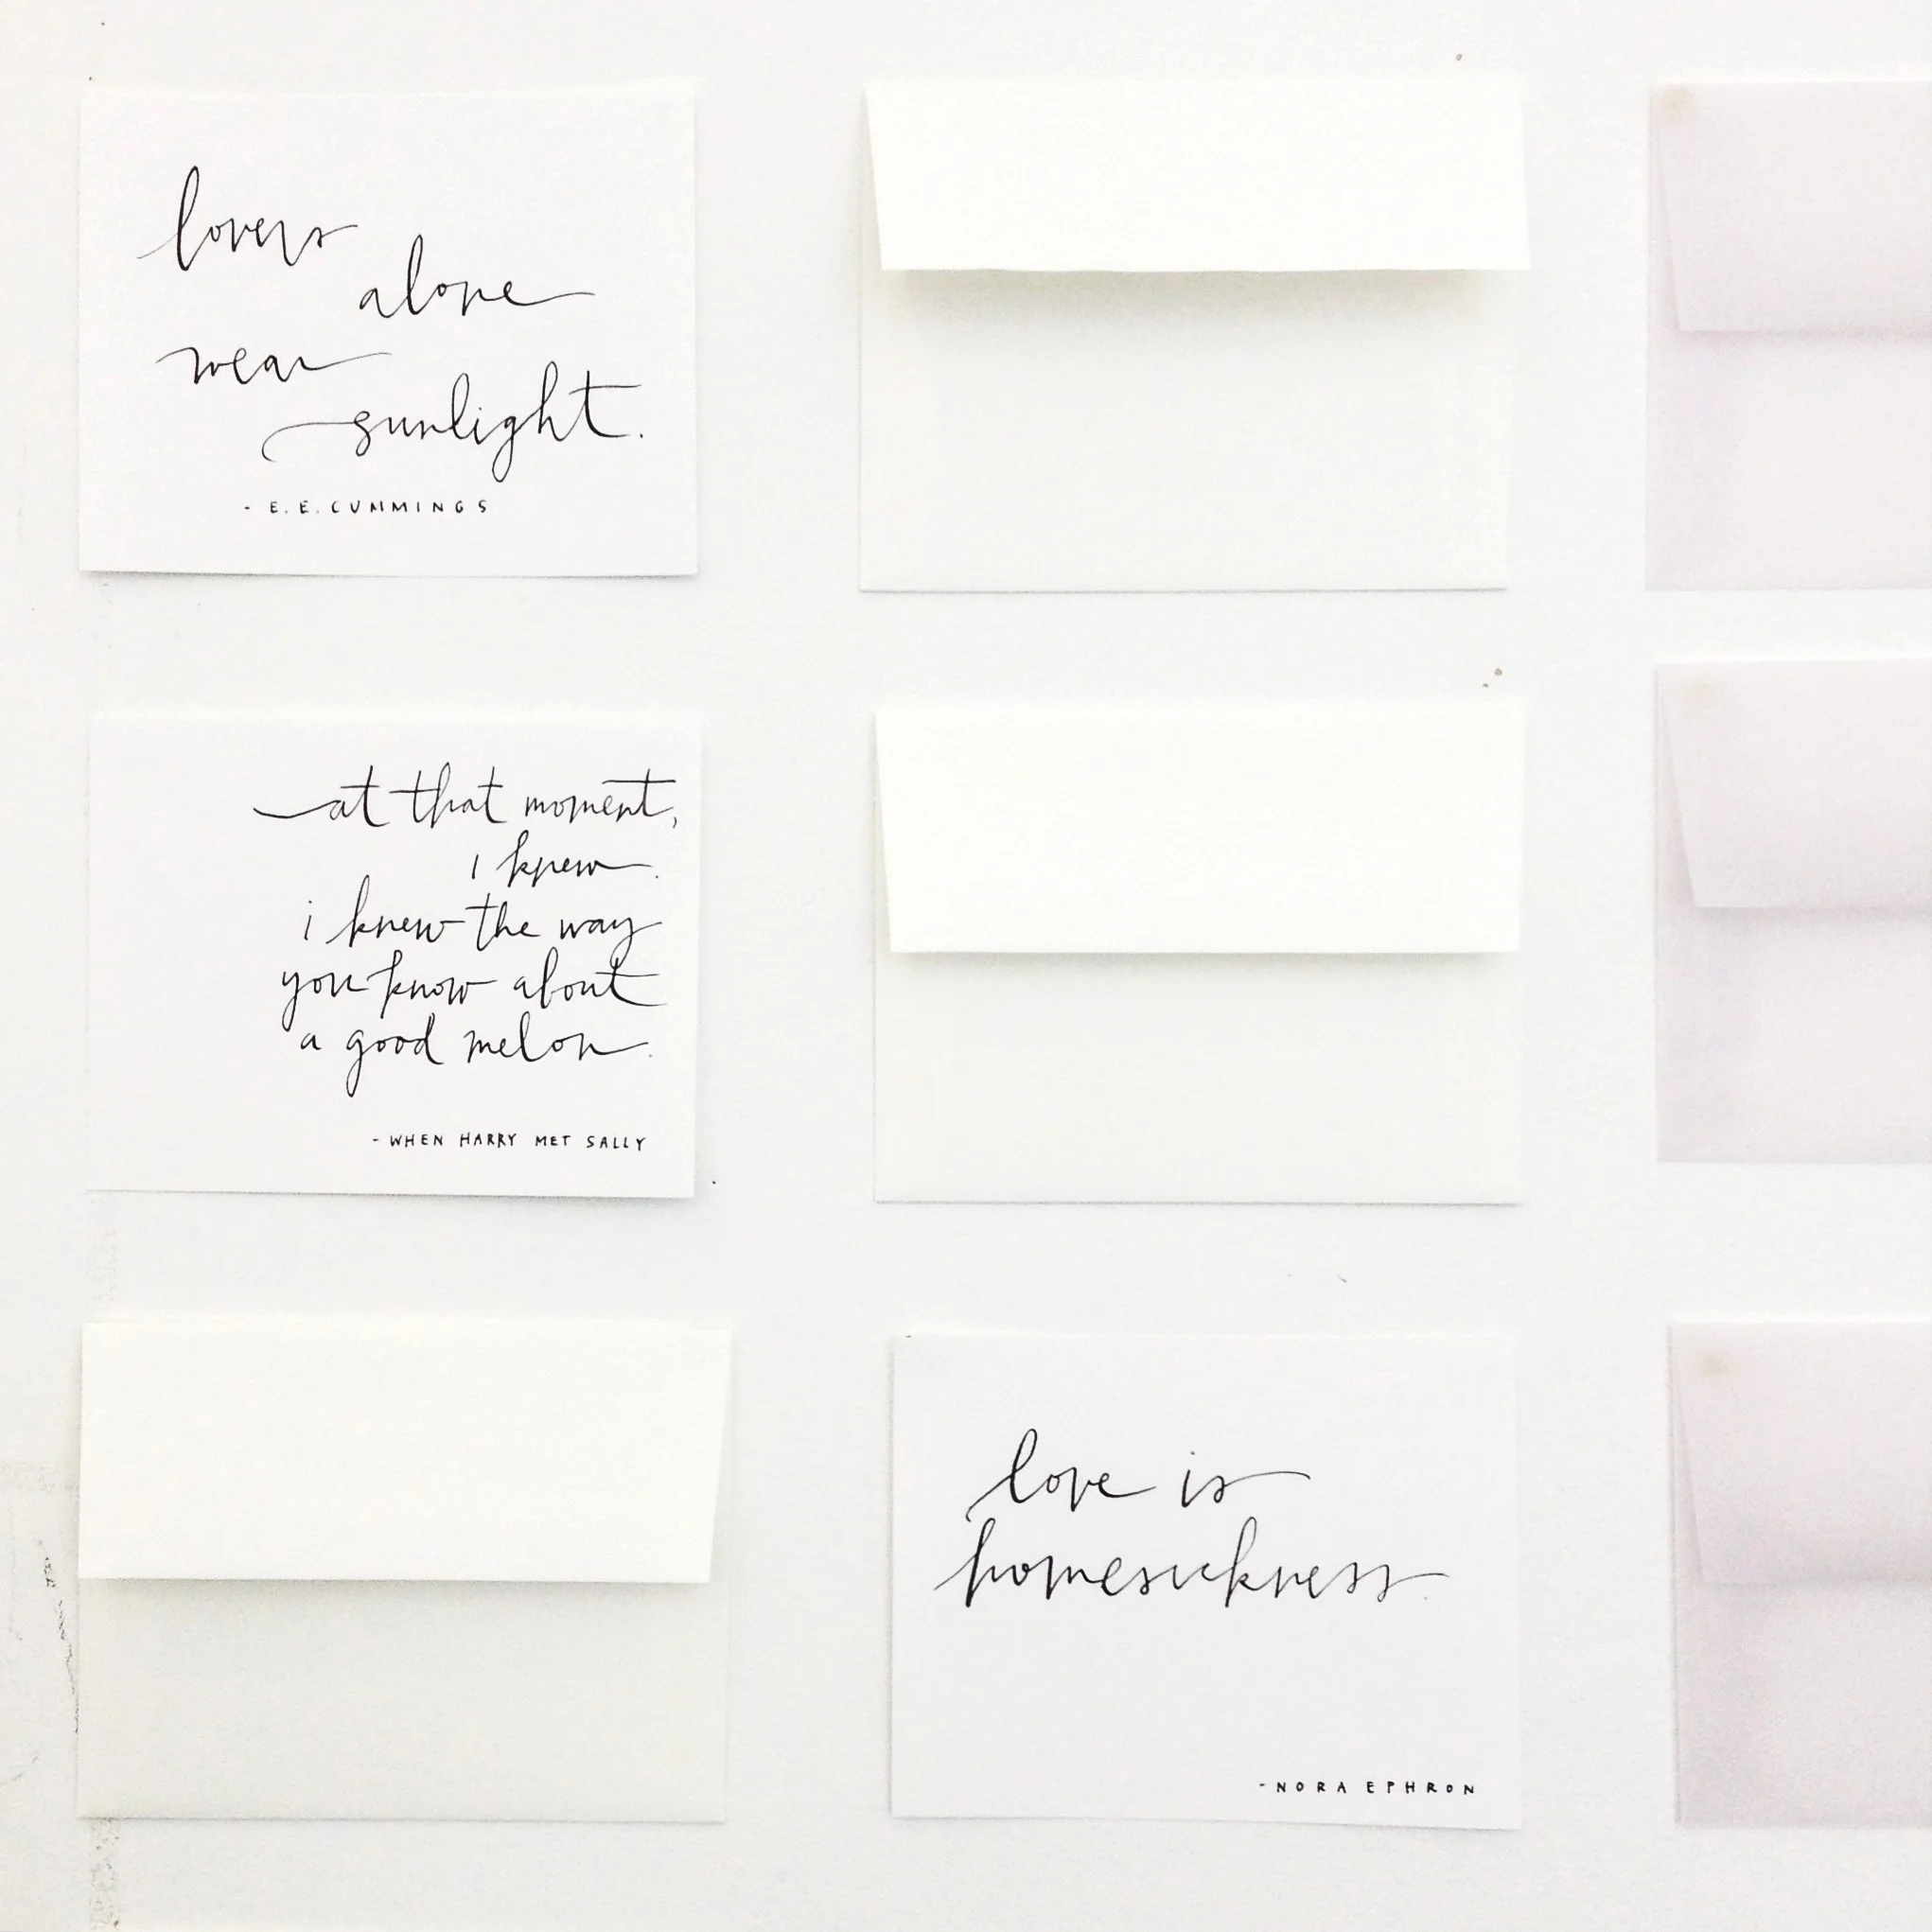 lovers
alone
wear
sunlight.
- E.E. CUMMINGS
at that moment,
i knew.
i knew the way
you know about
a good melon.
- WHEN HARRY MET SALLY
love is
homesickness.
- NORA EPHRON